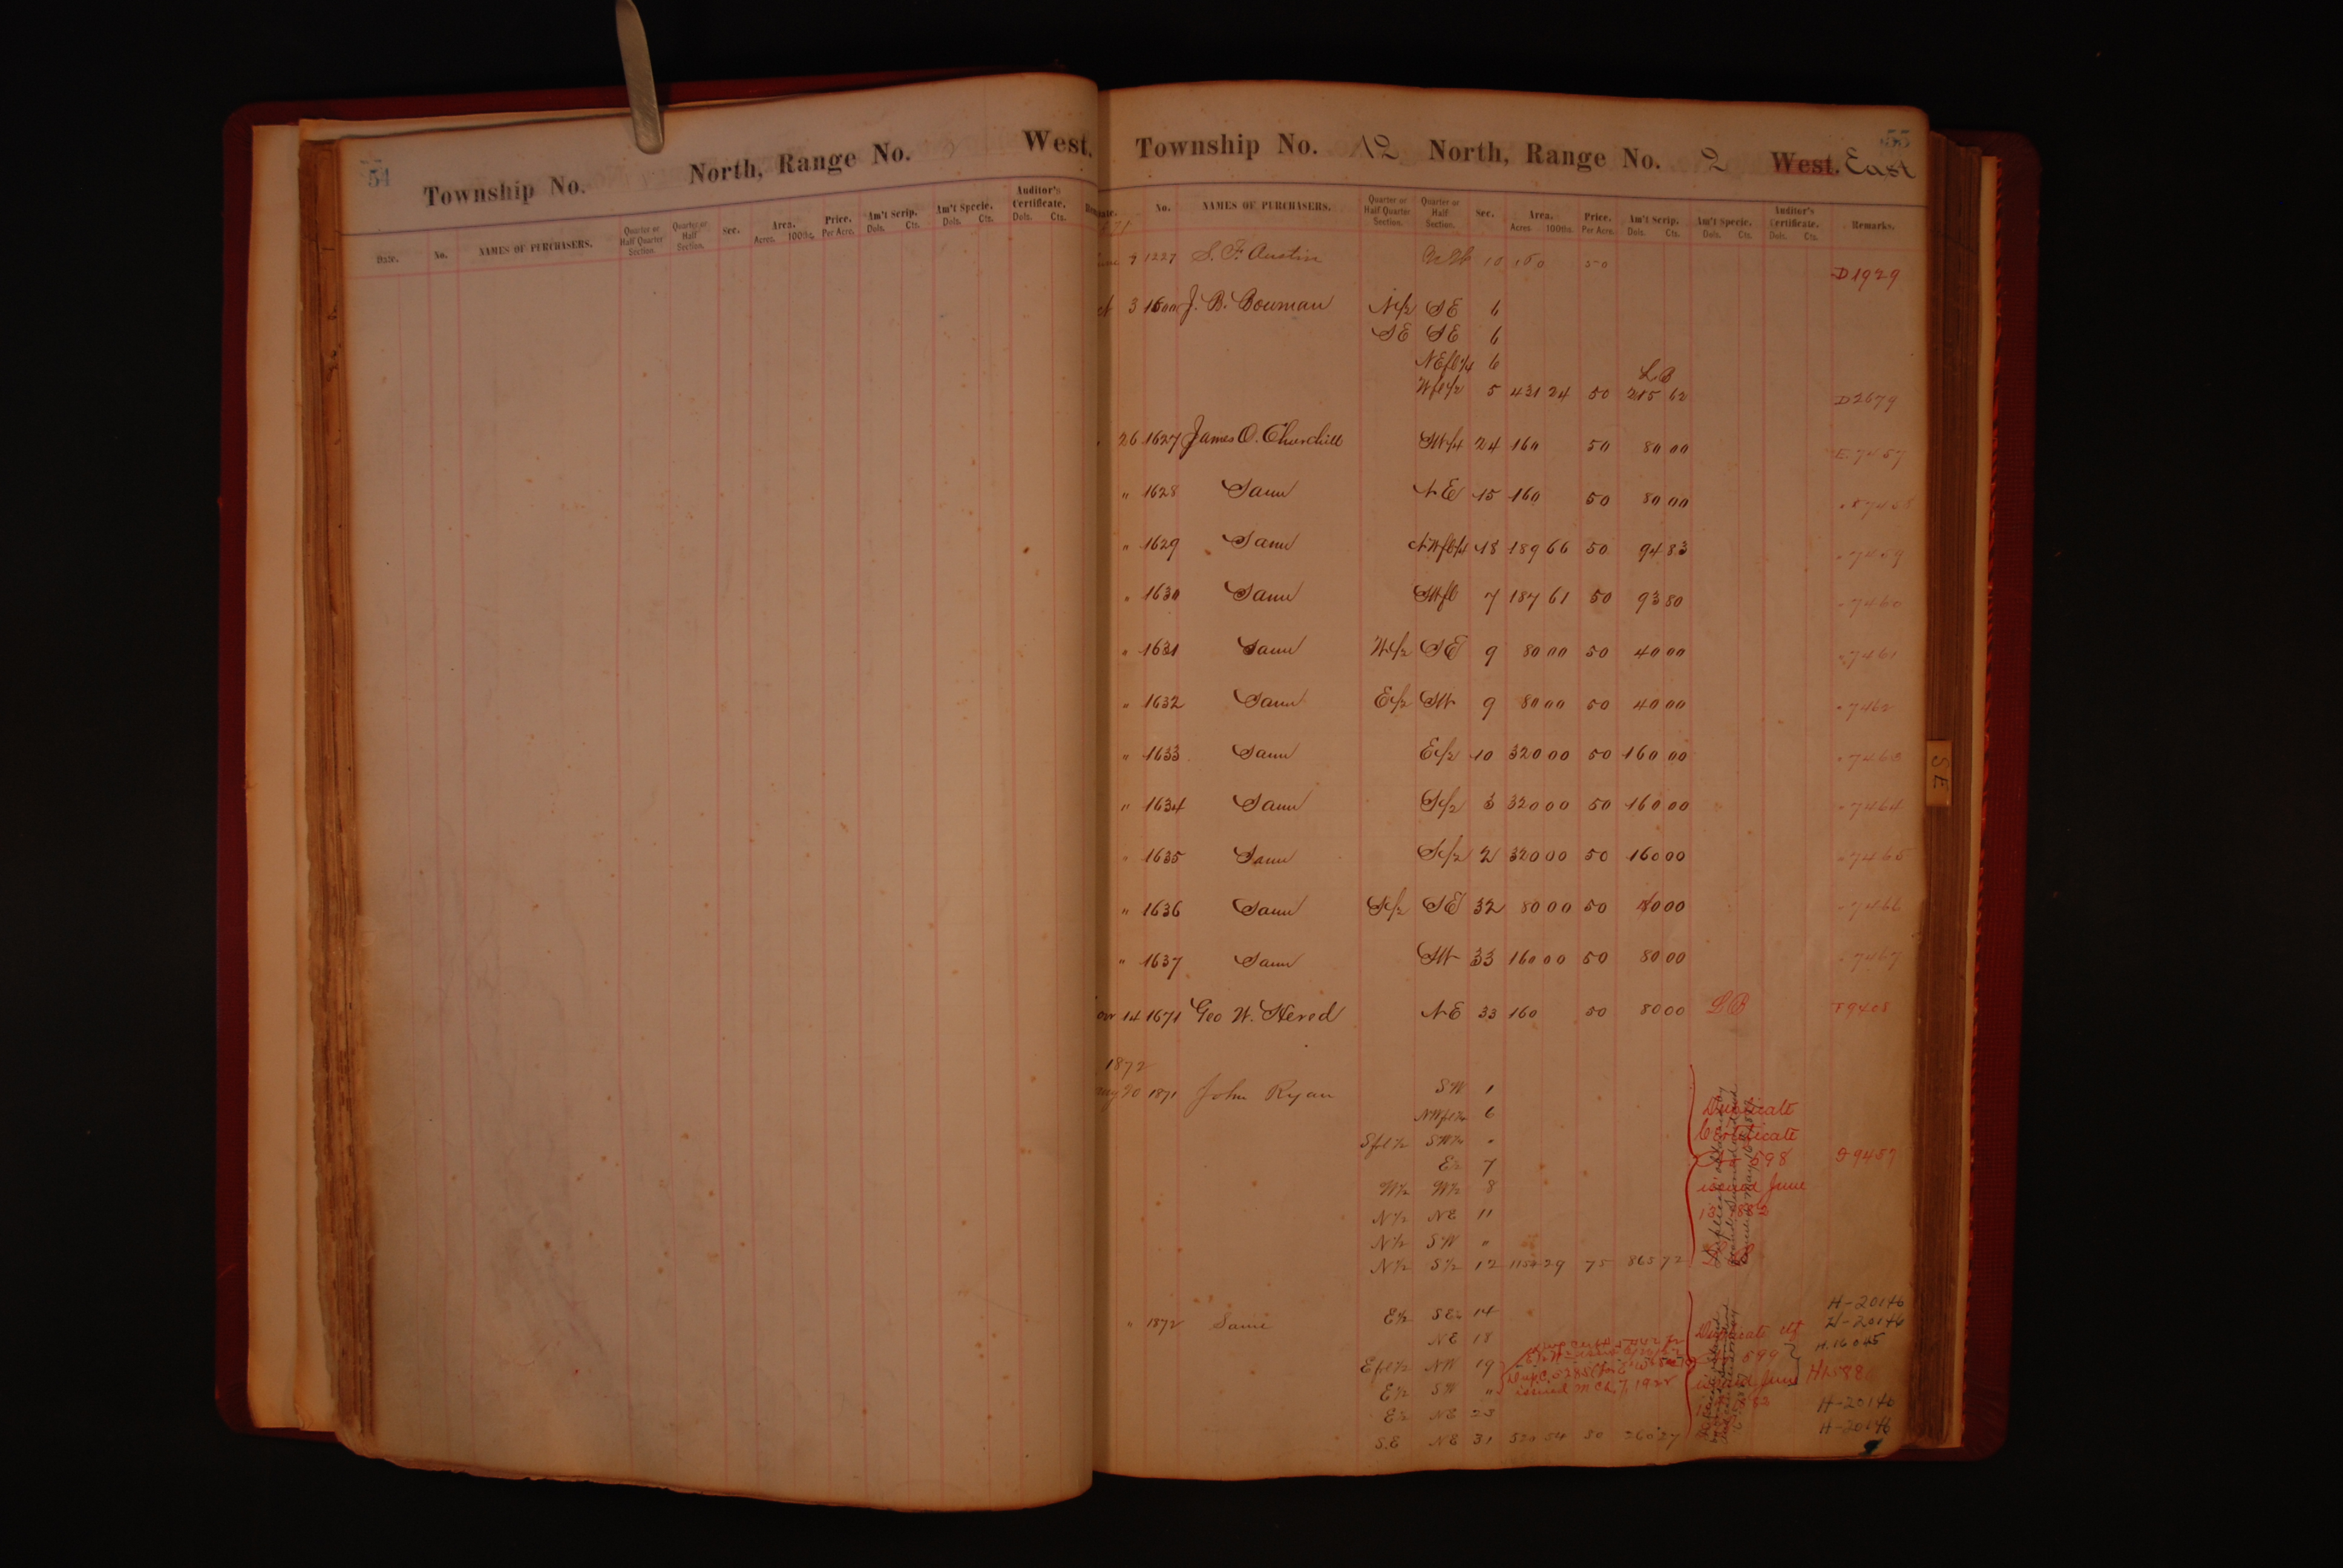 54
Township No. North, Range No. West.
Date. No. NAMES OF PURCHASERS. Quarter or Half Quarter Section. Quarter or Half Section. Sec. Area. Acres. 100ths. Price. Per Acre. Am't Scrip. Dols. Cts. Am't Specie. Dols. Cts. Auditor's Certificate. Dols. Cts.
55
Township No. 12 North, Range No. 2 West. East
No. NAMES OF PURCHASERS. Quarter or Half Quarter Section. Quarter or Half Section. Sec. Area. Acres 100ths. Price. Per Acre. Am't Scrip. Dols. Cts. Am't Specie. Dols. Cts. Auditor's Certificate. Dols. Cts. Remarks.
9 1227 S. F. Austin 10 160 50 D1929
3 1600 J. B. Bowman N1/2 SE 6
SE SE 6
NEfl1/4 6
LB
Wfl1/2 5 431 24 50 215 62 D2679
26 1627 James O. Churchill SW1/4 24 160 50 80 00 E 7457
" 1628 Same NE 15 160 50 80 00 " 7458
" 1629 Same NWfl1/4 18 189 66 50 94 83 " 7459
" 1630 Same SWfl 7 187 61 50 93 80 " 7460
" 1631 Same W1/2 SE 9 80 00 50 40 00 " 7461
" 1632 Same E1/2 SW 9 80 00 50 40 00 " 7462
" 1633 Same E1/2 10 320 00 50 160 00 " 7463
" 1634 Same S1/2 3 320 00 50 160 00 " 7464
" 1635 Same S1/2 2 320 00 50 160 00 " 7465
" 1636 Same S1/2 SE 32 80 00 50 40 00 " 7466
" 1637 Same SW 33 160 00 50 80 00 " 7467
14 1671 Geo W. Hered NE 33 160 50 80 00 LB F9408
1872
20 1871 John Ryan SW 1
NWfl1/4 6 Duplicate
Sfl1/2 SW1/4 " Certificate
E1/2 7 598 9457
W1/2 W1/2 8 issued June
N1/2 NE 11
N1/2 SW "
N1/2 S1/2 12 1154 29 75 865 72
H-20146
E1/2 SE 14 H-20146
" 1872 Same NE 18 Duplicate ctf H.16045
Efl1/2 NW 19 599
E1/2 SW " issued Mch. 7, 1922 issued June
E1/2 NE 23 H-20146
SE NE 31 520 54 50 260 27 H-20146
SE